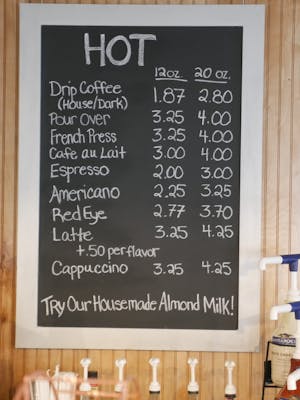 HOT
12oz. 20 oz.
Drip Coffee 1.87 2.80
(House/Dark)
Pour Over 3.25 4.00
French Press 3.25 4.00
Cafe au Lait 3.00 4.00
Espresso 2.00 3.00
Americano 2.25 3.25
Red Eye 2.77 3.70
Latte 3.25 4.25
+.50 per flavor
Cappuccino 3.25 4.25
Try Our Housemade Almond Milk!